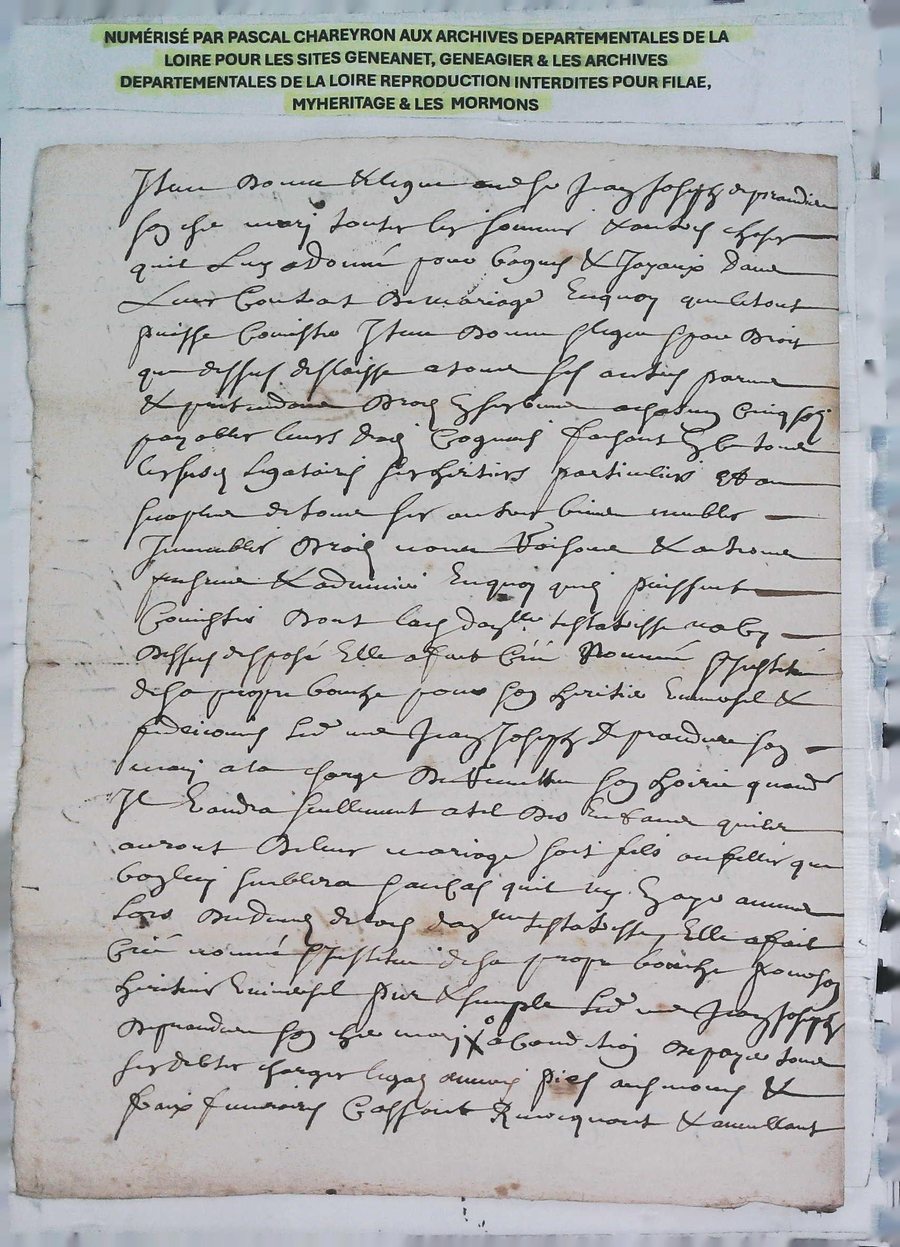 NUMÉRISÉ PAR PASCAL CHAREYRON AUX ARCHIVES DEPARTEMENTALES DE LA
LOIRE POUR LES SITES GENEANET, GENEAGIER & LES ARCHIVES
DEPARTEMENTALES DE LA LOIRE REPRODUCTION INTERDITES POUR FILAE,
MYHERITAGE & LES MORMONS
Item donne & legue audit Sr Jean Joseph de prandiere
son cher mary toutes les sommes & autres choses
quil luy a donné pour bagues & Joyaux dans
Leur Contrat de mariage Enquoy que le tout
puisse Consister Item donne legue & par droit
que dessus delaisse a tous ses autres parans
& pretendans droit en ses biens a chacun Cinq sols
payables leurs droits Cognus faisant en ce tous
lesusdits legataires ses heritiers particuliers Et au
surplus de tous ses autres biens meubles
Immeubles droits noms Voix & actions
presans & advenirs Enquoy quils puissent
Consister dont lad. daylle testatrisse na cy
dessus disposé Elle a fait Créé Nommé & Institué
de sa propre bouche pour son heritier Universel &
led. me Jean Joseph de prandiere son
mary a la charge de remettre son hoirie quand
Il Voudra seullement a tel des Enfans quils
auront de leur mariage soit fils ou filles que
bon luy semblera Et au cas quil ny En aye aucun
Lors du deces de lad. daylle testatrisse, Elle a fait
Créé nommé & Institué de sa propre bouche pour son
heritier Universel pur & simple led. me Jean Joseph
de prandiere son cher mary a Condition de payer tous
ses debtes charges legats pies ausmones &
fraix funeraires Cassant Revocquant & anullant